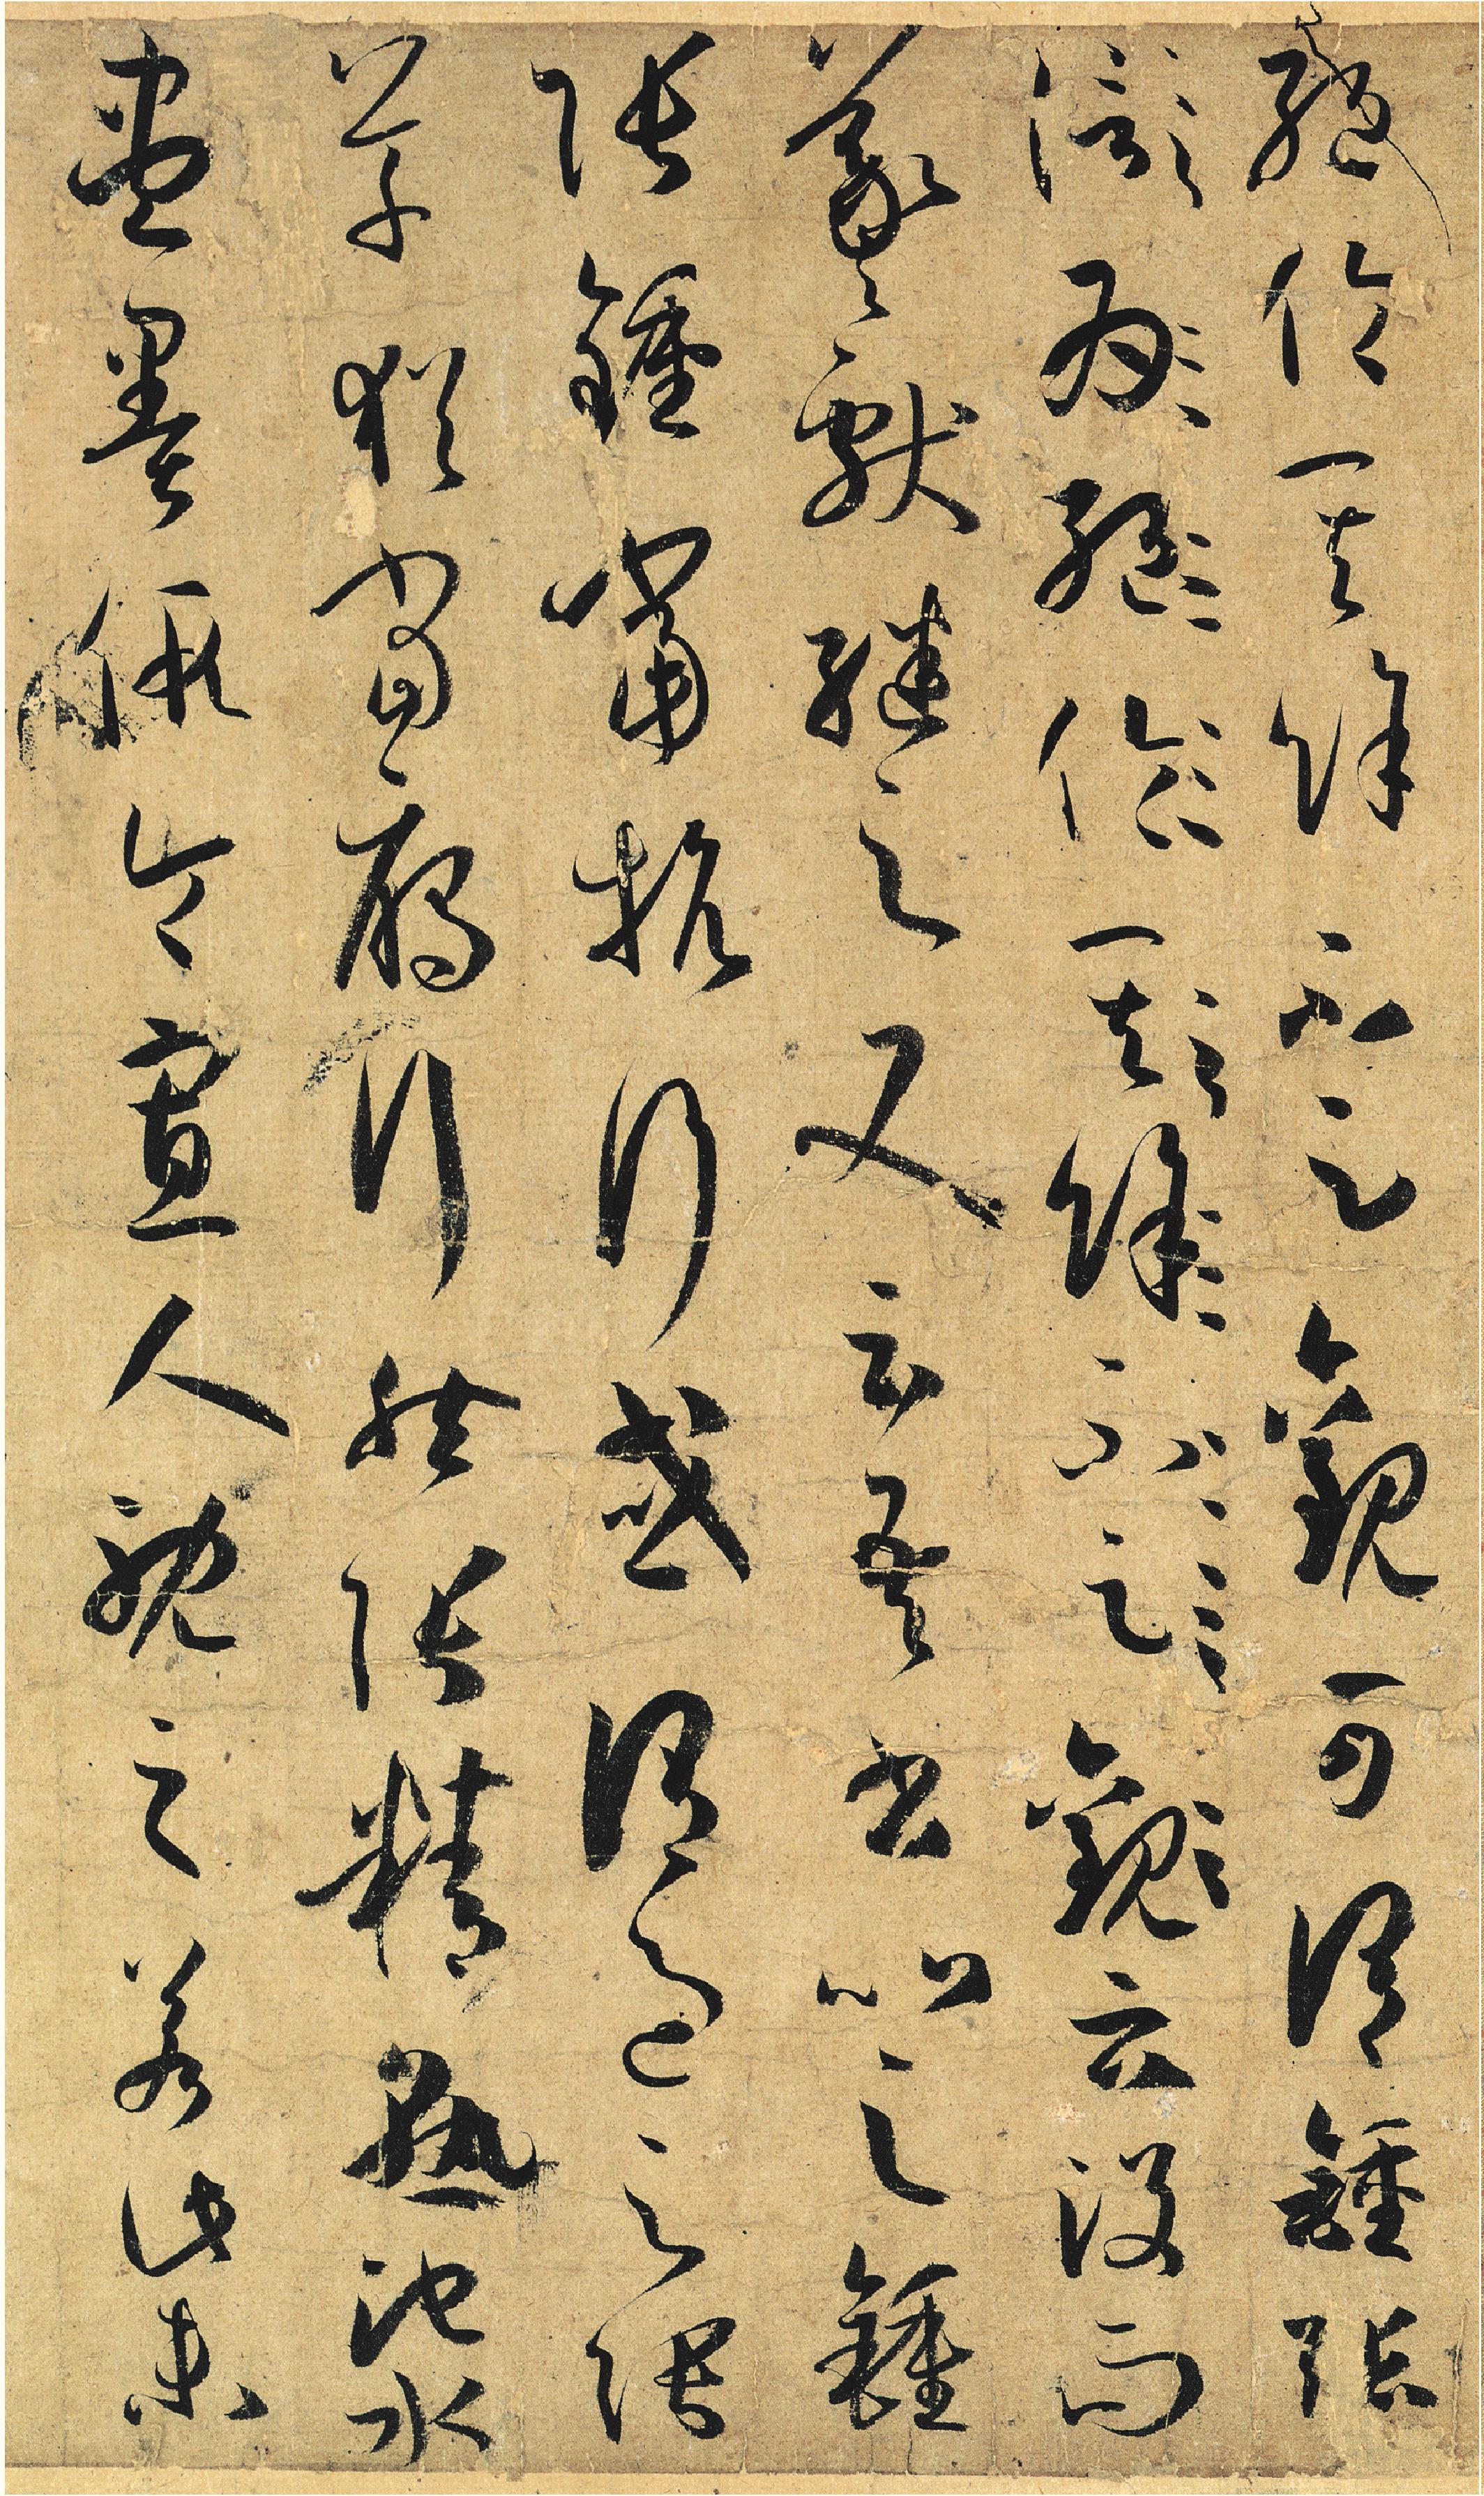 絕倫其餘不足觀可謂鍾張
信為絕倫其餘不足觀云沒而
羲獻繼之又云吾書比之鍾
張鍾當抗行或謂過之張
草猶當鴈行然張精熟池水
盡墨假令寡人耽之若此未